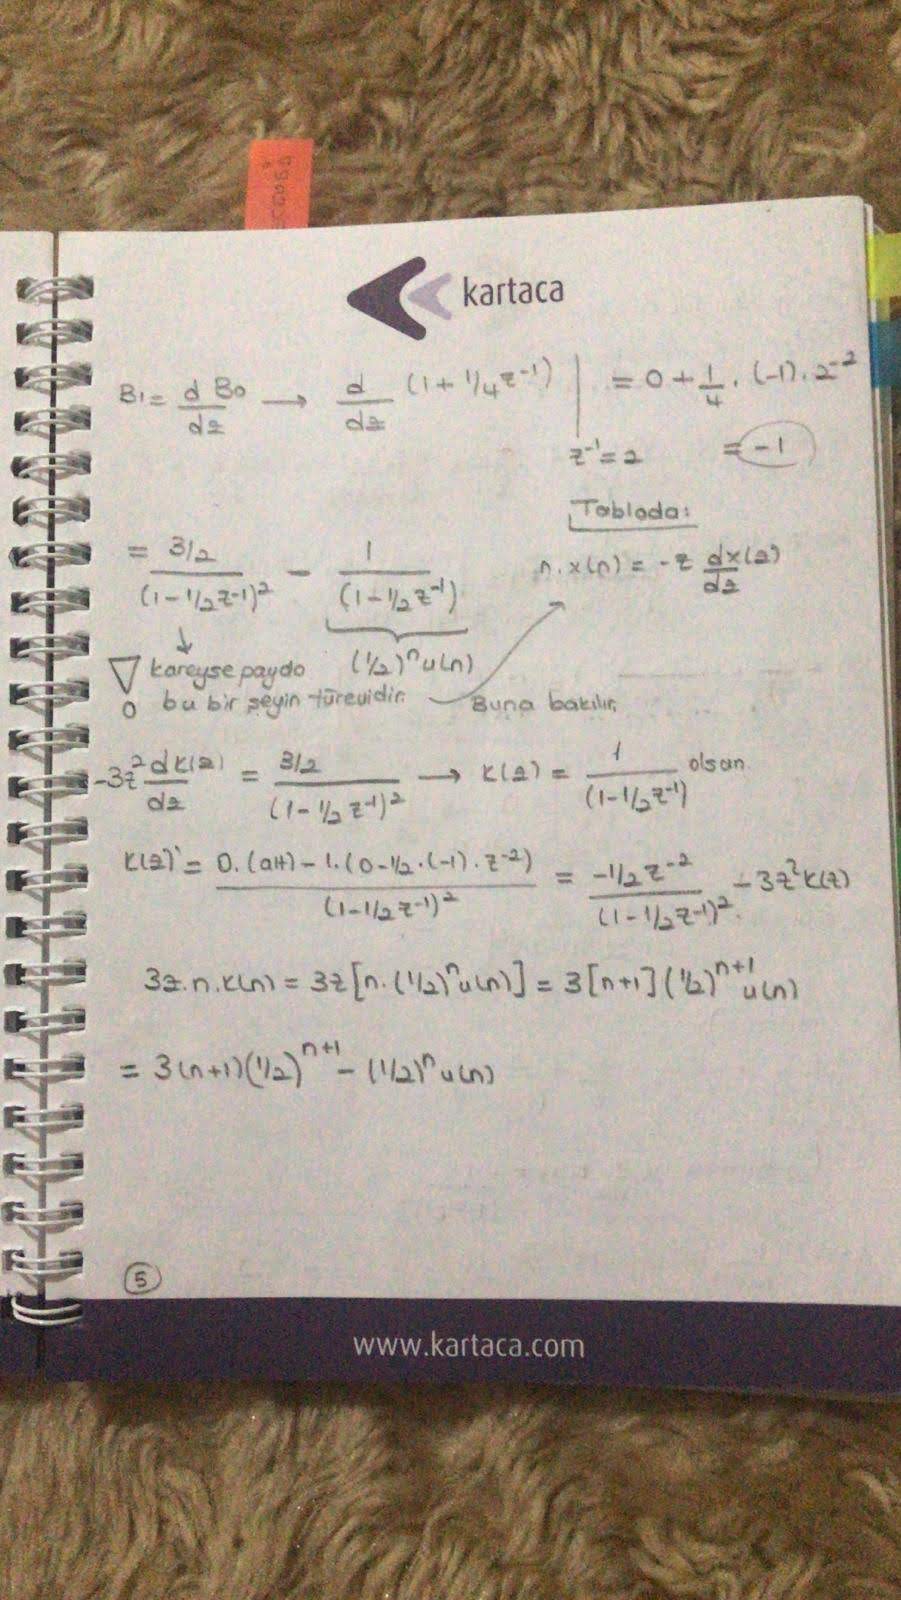 kartaca
B₁ = d B₀/dz → d/dz (1 + 1/4 z⁻¹) | z⁻¹ = 2 = 0 + 1/4 . (-1) . 2⁻²
= -1
Tabloda:
n.x(n) = -z dx(z)/dz
= 3/2 / (1 - 1/2 z⁻¹)² - 1 / (1 - 1/2 z⁻¹)
(1/2)ⁿ u(n)
kareyse payda
bu bir şeyin türevidir. Buna bakılır.
-3z² dK(z)/dz = 3/2 / (1 - 1/2 z⁻¹)² → K(z) = 1 / (1 - 1/2 z⁻¹) olsun
K(z)' = 0.(alt) - 1.(0 - 1/2 . (-1) . z⁻²) / (1 - 1/2 z⁻¹)² = -1/2 z⁻² / (1 - 1/2 z⁻¹)² . -3z² K(z)
3z.n.K(n) = 3z [n.(1/2)ⁿ u(n)] = 3[n+1] (1/2)ⁿ⁺¹ u(n)
= 3(n+1)(1/2)ⁿ⁺¹ - (1/2)ⁿ u(n)
5
www.kartaca.com